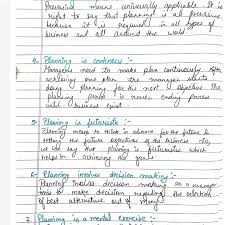 Pervasive means universally applicable. It is
right to say that planning is all pervasive
because it is required in all types of
business and all around the world.
4. Planning is continous :-
Managers need to make plan continuously. After
achieving one plan the manager starts
doing planning for the next objective. The
planning process is never ending process
until business exist.
5. Planning is futuristic :-
Planning means to think in advance for the future &
setting the future objectives of the business. So,
we can say that planning is futuristic which
helps in achieving the goals
6. Planning involves decision making :-
Planning involves decision making as a manager
has to make decision regarding the selection
of best alternative out of many
7. Planning is a mental exercise :-